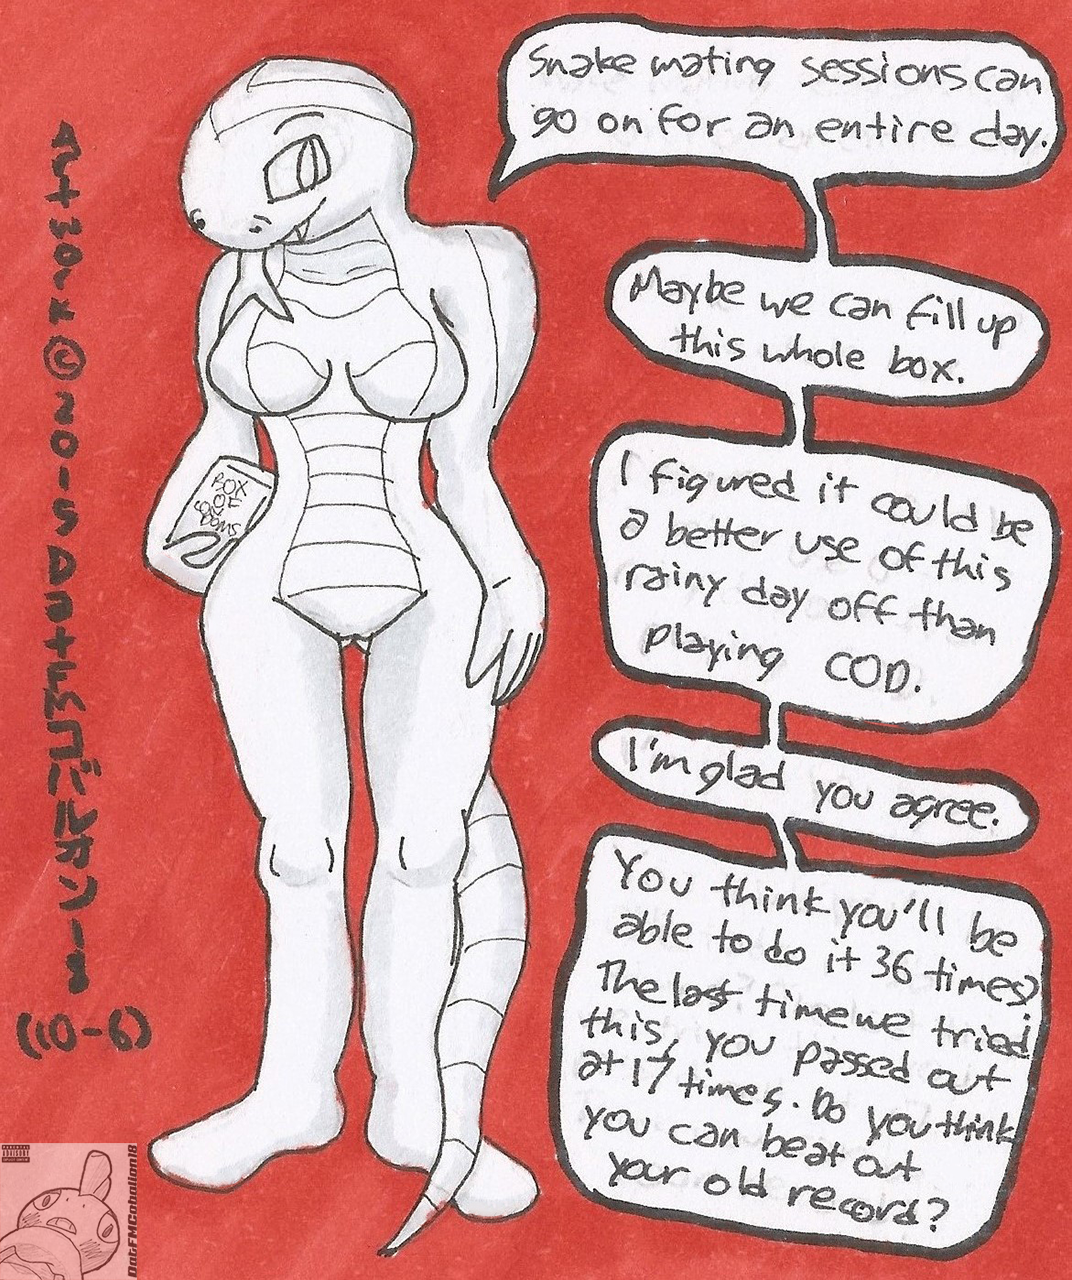 Snake mating sessions can
go on for an entire day.
Maybe we can fill up
this whole box.
I figured it could be
a better use of this
rainy day off than
playing COD.
I'm glad you agree.
You think you'll be
able to do it 36 times?
The last time we tried
this, you passed out
at 17 times. Do you think
you can beat out
your old record?
BOX
OF
CON
DOMS
(10-6)
DatFMCobalion18